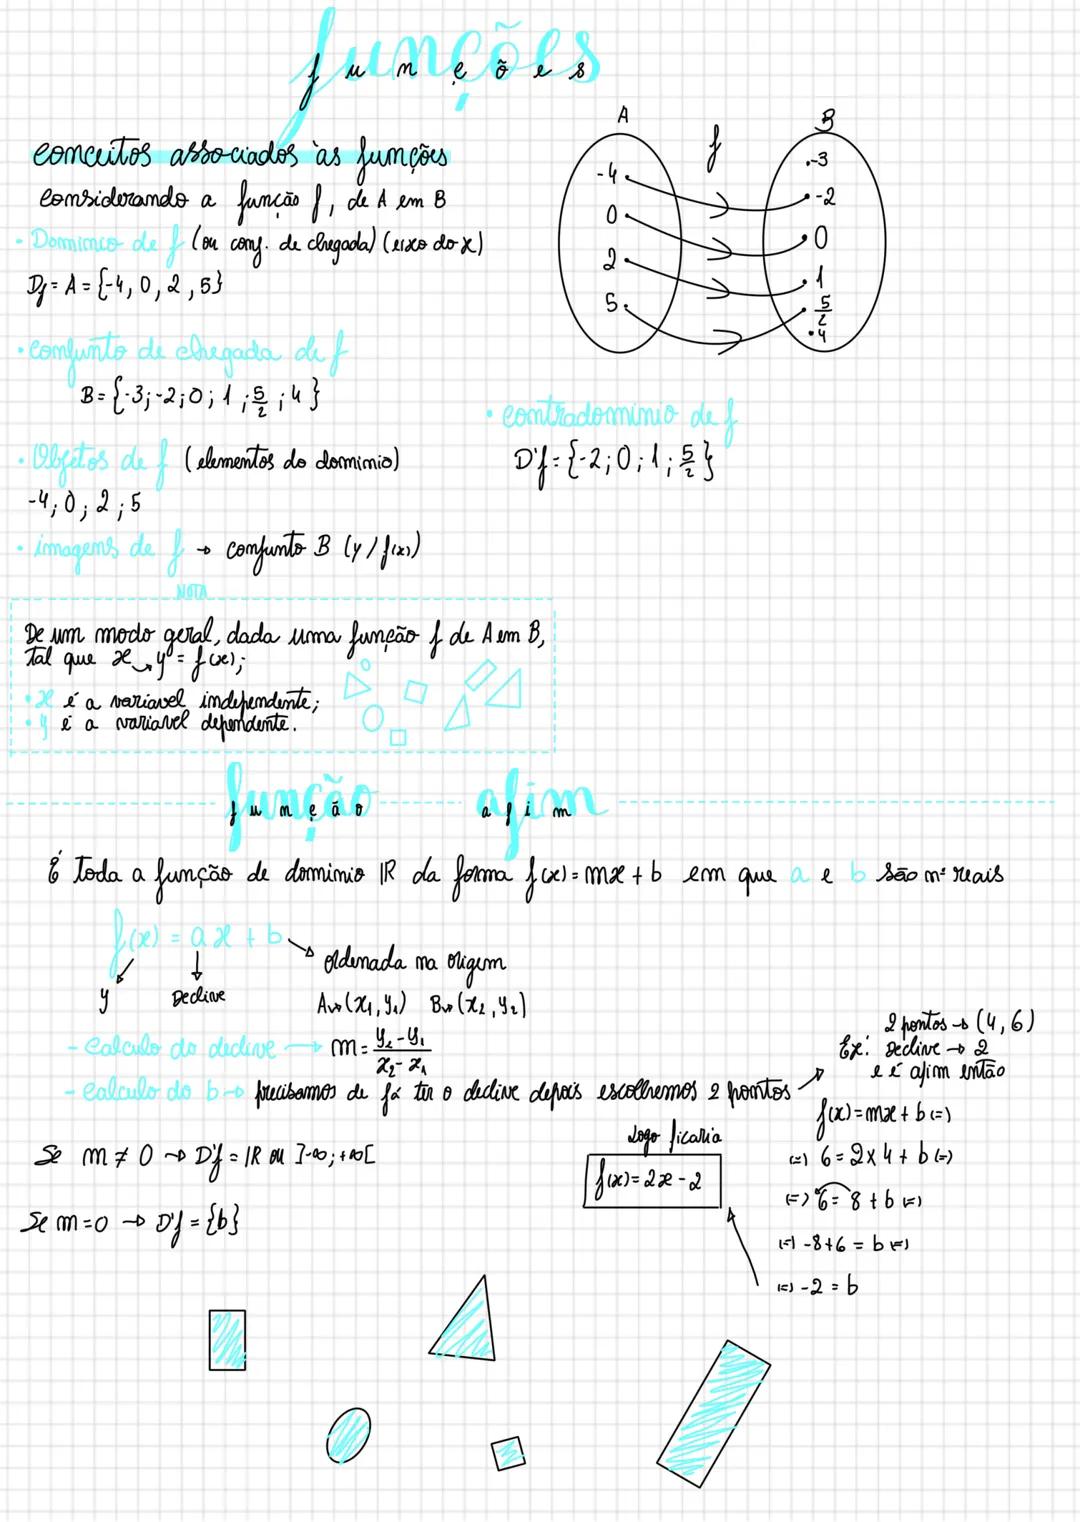 funções
funções
conceitos associados às funções
considerando a função f, de A em B
• Dominio de f (ou conj. de chegada) (eixo do x)
Df = A = {-4, 0, 2, 5}
• conjunto de chegada de f
B = {-3; -2; 0; 1; 5/2; 4}
• Objetos de f (elementos do dominio)
-4; 0; 2; 5
• imagens de f → conjunto B (y / f(x))
A
f
B
-4
0
2
5
-3
-2
0
1
5/2
4
• contradominio de f
D'f = {-2; 0; 1; 5/2}
NOTA
De um modo geral, dada uma função f de A em B,
tal que x → y = f(x);
• x é a variavel independente;
• y é a variavel dependente.
função afim
função afim
É toda a função de dominio IR da forma f(x) = mx + b em que a e b são nº reais
f(x) = ax + b
ordenada na origem
y
Declive
A→(x₁, y₁) B→(x₂, y₂)
- calculo do declive → m = y₂-y₁/x₂-x₁
- calculo do b → precisamos de já ter o declive depois escolhemos 2 pontos
2 pontos → (4, 6)
Ex: Declive → 2
e é afim então
f(x) = mx + b (=)
(=) 6 = 2 x 4 + b (=)
(=) 6 = 8 + b (=)
(=) -8 + 6 = b (=)
(=) -2 = b
Logo ficaria
f(x) = 2x - 2
Se m ≠ 0 → D'f = IR ou ]-∞; +∞[
Se m = 0 → D'f = {b}